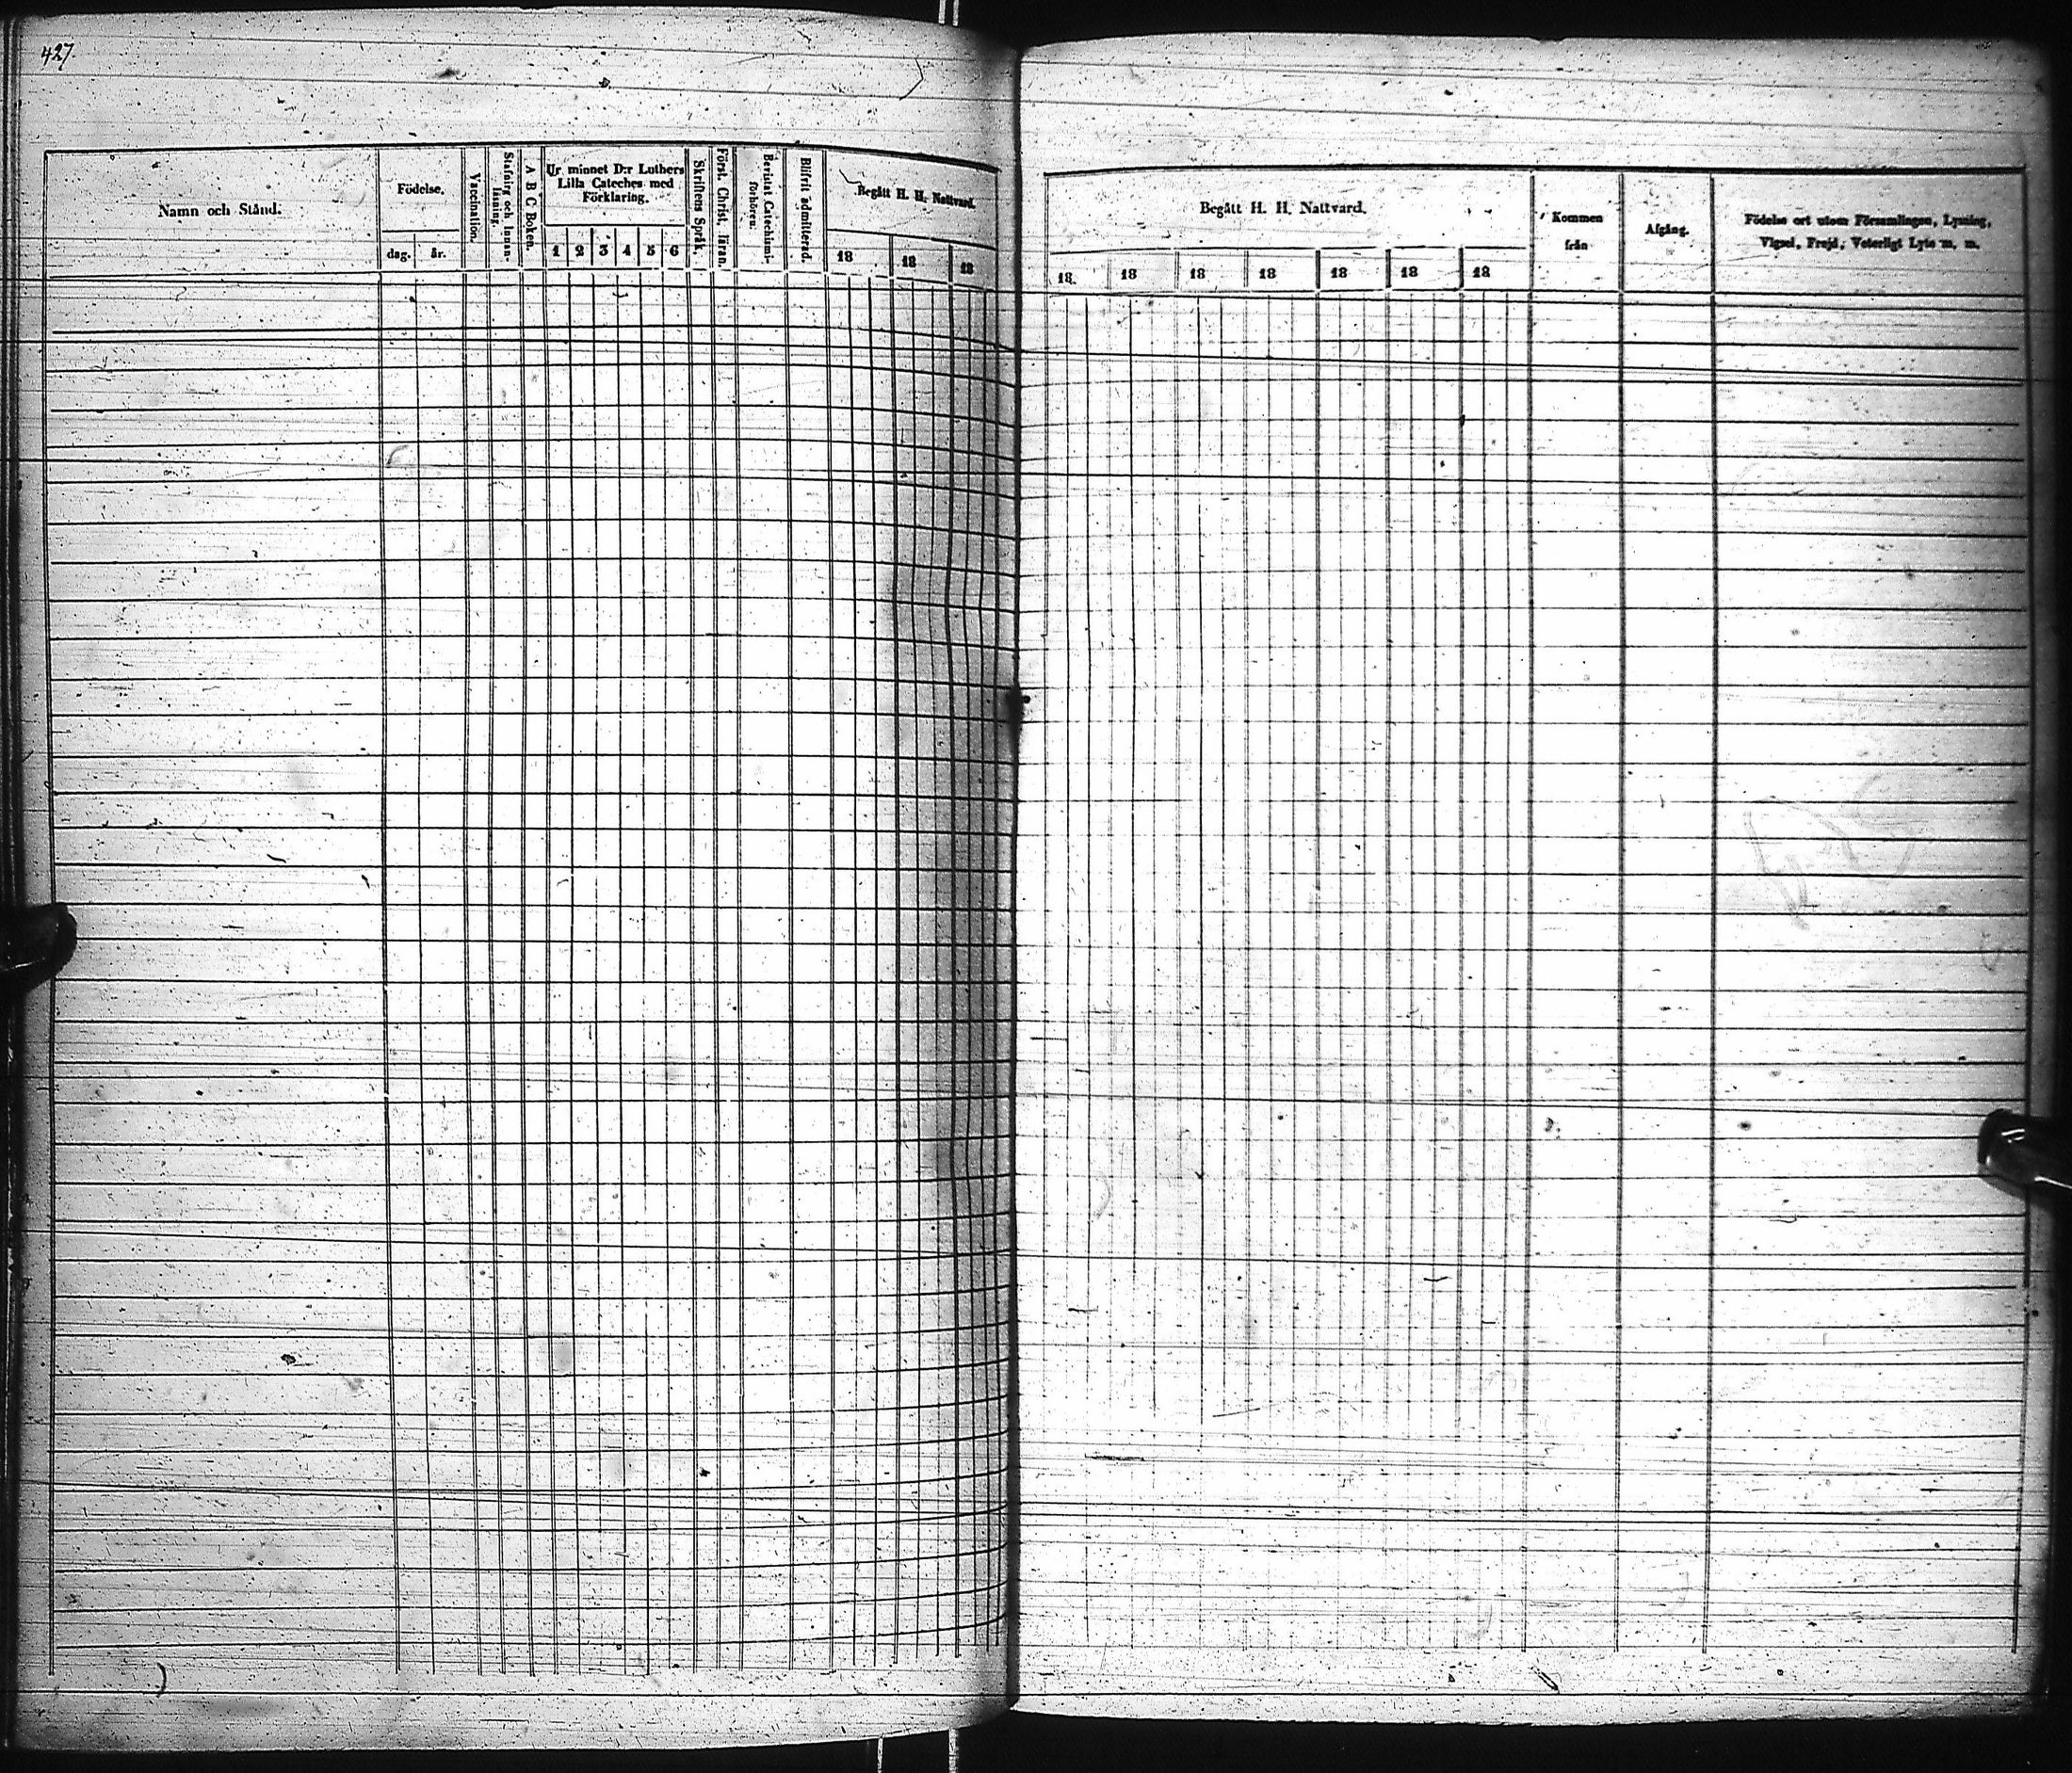 427.
Namn och Stånd.
Födelse.
dag.
år.
Vaccination.
Stafning och Innan-
läsning.
A B C Boken.
Ur minnet D:r Luthers
Lilla Cateches med
Förklaring.
1 2 3 4 5 6
Skriftens Språk.
Först. Christ. läran.
Bevistat Catechismi-
förhören.
Blifvit admitterad.
Begått H. H. Nattvard.
18 18 18
Begått H. H. Nattvard.
18. 18 18 18 18 18 18
Kommen
från
Afgång.
Födelse ort utom Församlingen, Lysning,
Vigsel, Frejd, Veterligt Lyte m. m.